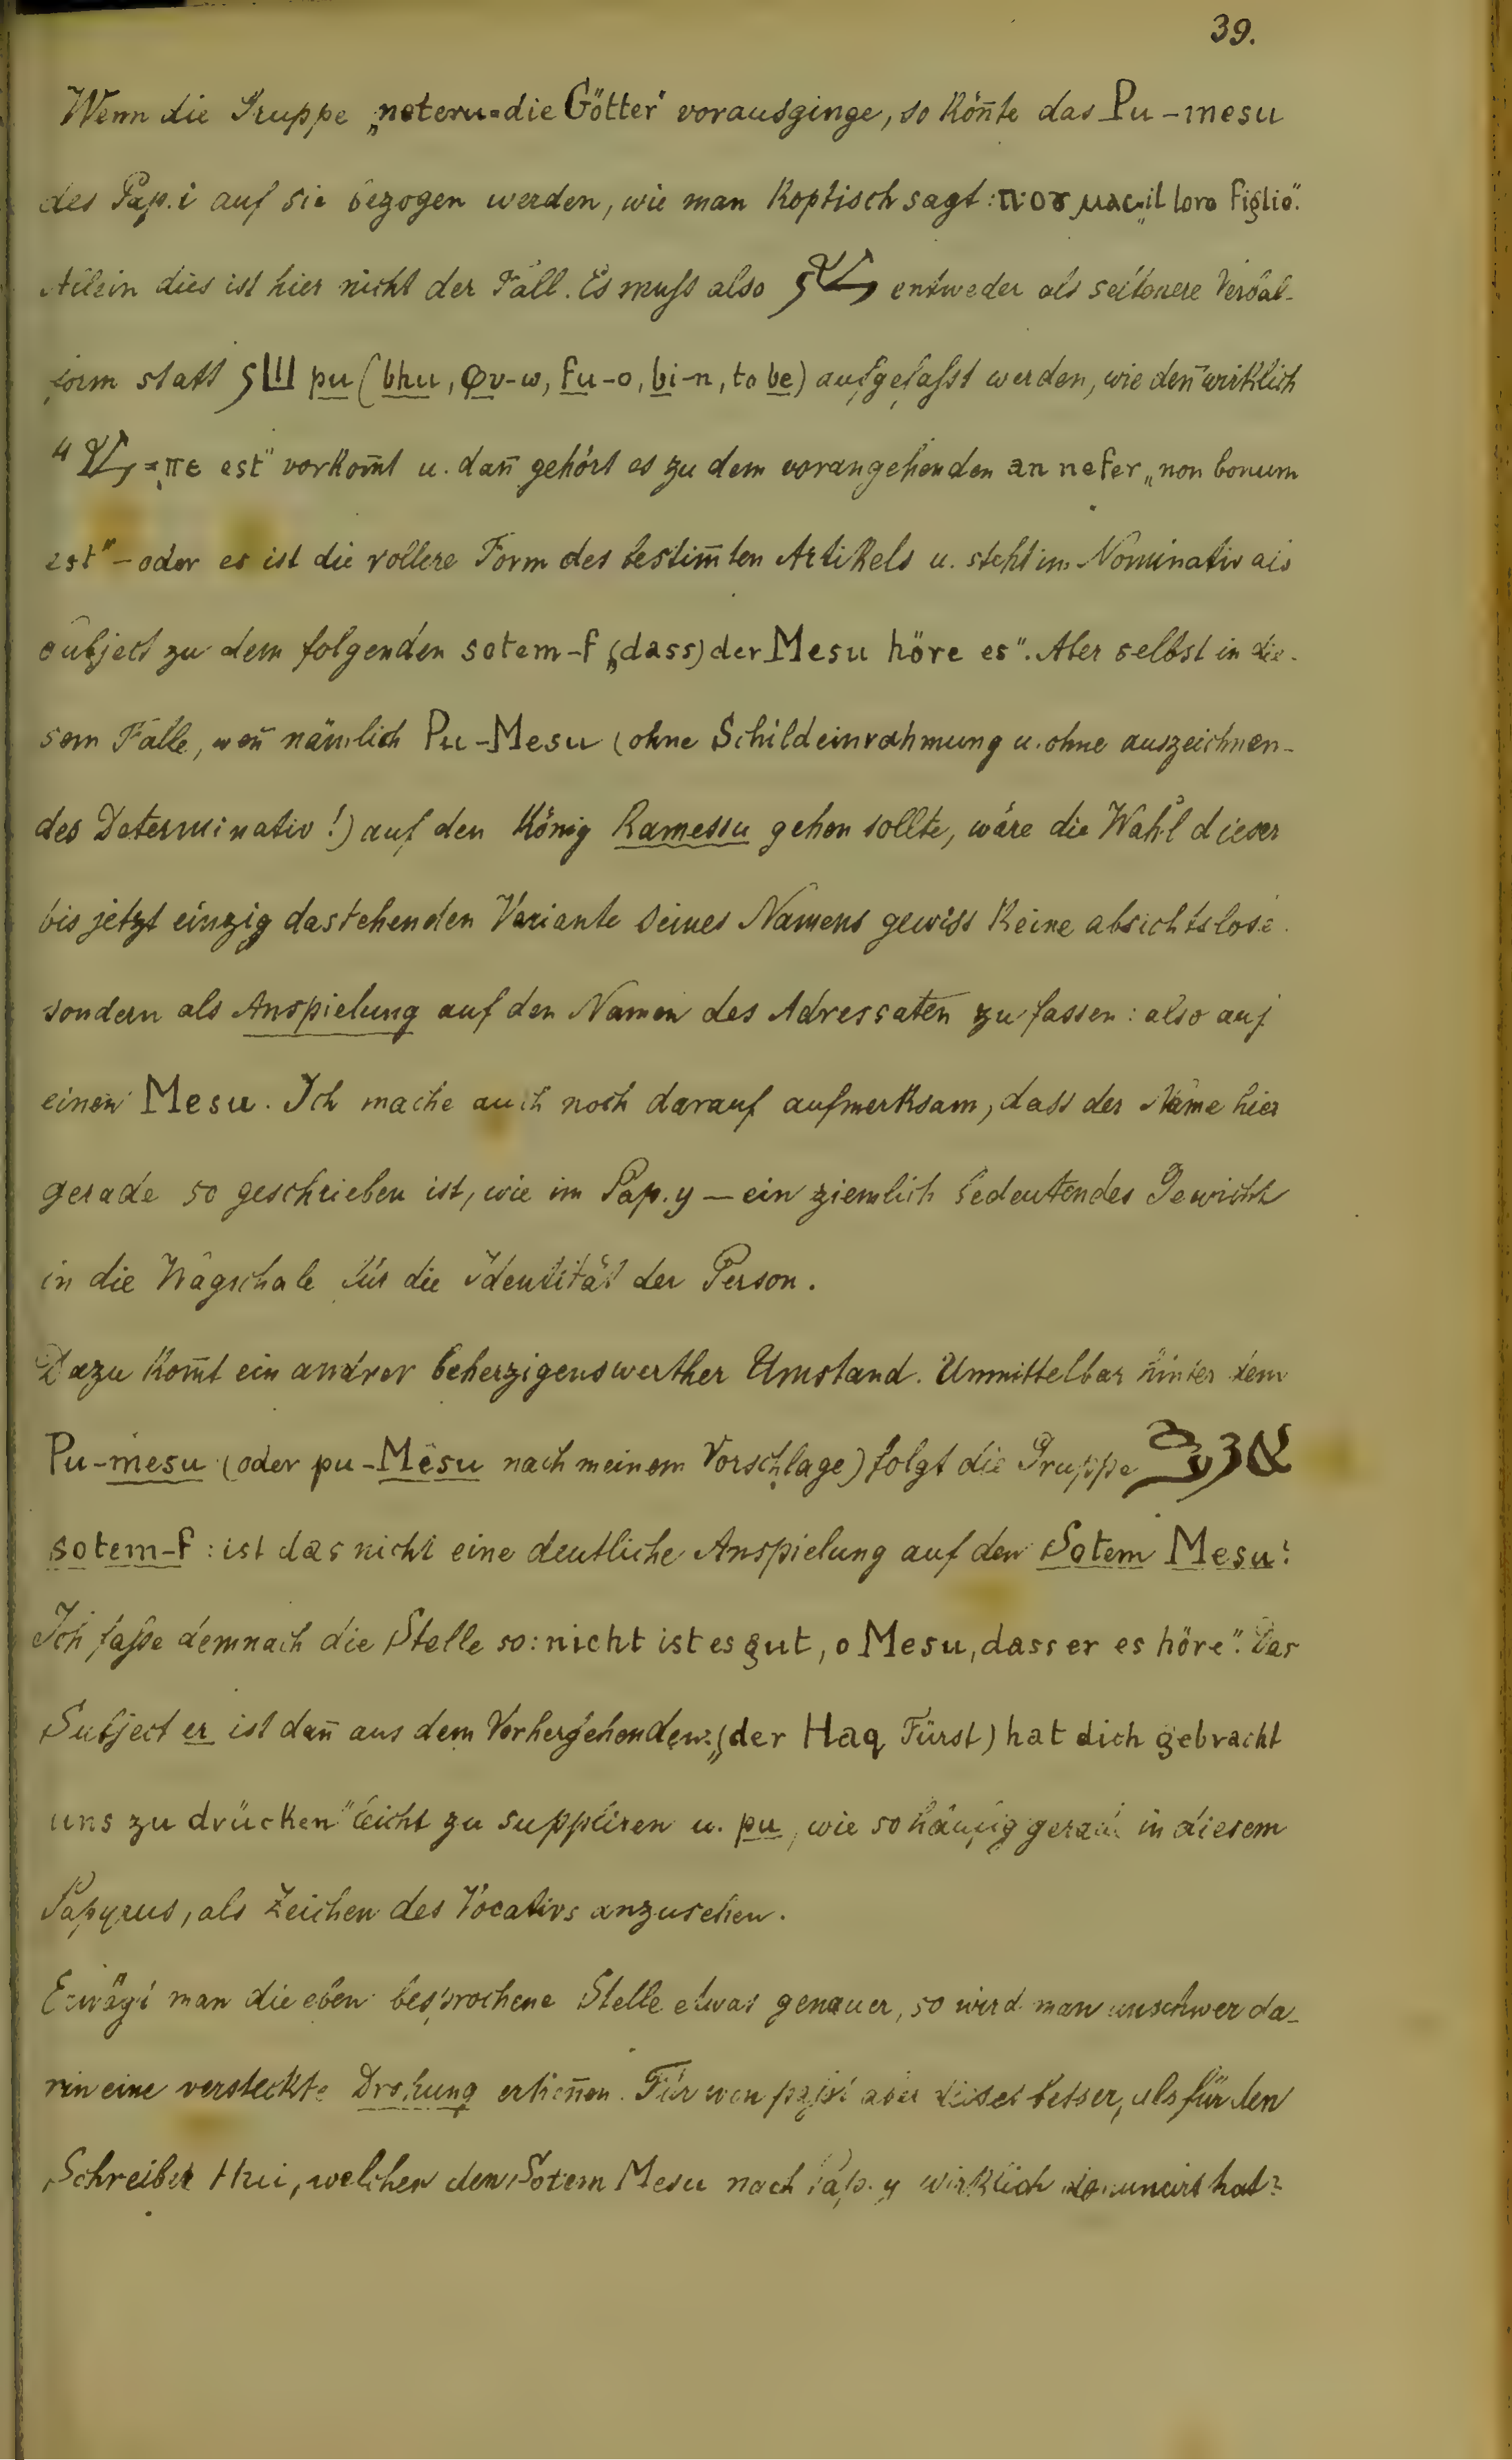 39.
Wenn die Gruppe „noteru=die Götter“ vorausginge, so kön̄te das Pu-mesu
des Pap. i auf sie bezogen werden, wie man koptisch sagt: „il loro figlio“.
Allein dies ist hier nicht der Fall. Es muss also entweder als seltenere Verbal-
form statt pu (bhu, φυ-ω, fu-o, bi-n, to be) aufgefasst werden, wie den̄ wirklich
=πε est“ vorkom̄t u. dan̄ gehört es zu dem vorangehenden an nefer „non bonum
est“ – oder es ist die vollere Form des bestim̄ten Artikels u. steht im Nominativ als
Subject zu dem folgenden sotem-f „(dass) der Mesu höre es“. Aber selbst in die-
sem Falle, wen̄ nämlich Pu-Mesu (ohne Schildeinrahmung u. ohne auszeichnen-
des Determinativ!) auf den König Ramessu gehen sollte, wäre die Wahl dieser
bis jetzt einzig dastehenden Variante seines Namens gewiss keine absichtslose
sondern als Anspielung auf den Namen des Adressaten zu fassen: also auf
einen Mesu. Ich mache auch noch darauf aufmerksam, dass der Name hier
gerade so geschrieben ist, wie im Pap. y — ein ziemlich bedeutendes Gewicht
in die Wagschale für die Identität der Person.
Dazu kom̄t ein andrer beherzigenswerther Umstand. Unmittelbar hinter dem
Pu-mesu (oder pu-Mesu nach meinem Vorschlage) folgt die Gruppe
sotem-f: ist das nicht eine deutliche Anspielung auf den Sotem Mesu?
Ich fasse demnach die Stelle so: nicht ist es gut, o Mesu, dass er es höre“. Das
Subject er ist dan̄ aus dem Vorhergehenden: „(der Haq Fürst) hat dich gebracht
uns zu drücken“ leicht zu suppliren u. pu, wie so häufig gerade in diesem
Papyrus, als Zeichen des Vocativs anzusehen.
Erwägt man die eben besprochene Stelle etwas genauer, so wird man unschwer da-
rin eine versteckte Drohung erken̄en. Für wen passt aber dieses besser, als für den
Schreiber Hui, welchen den Sotem Mesu nach Pap. y wirklich denuncirt hat?